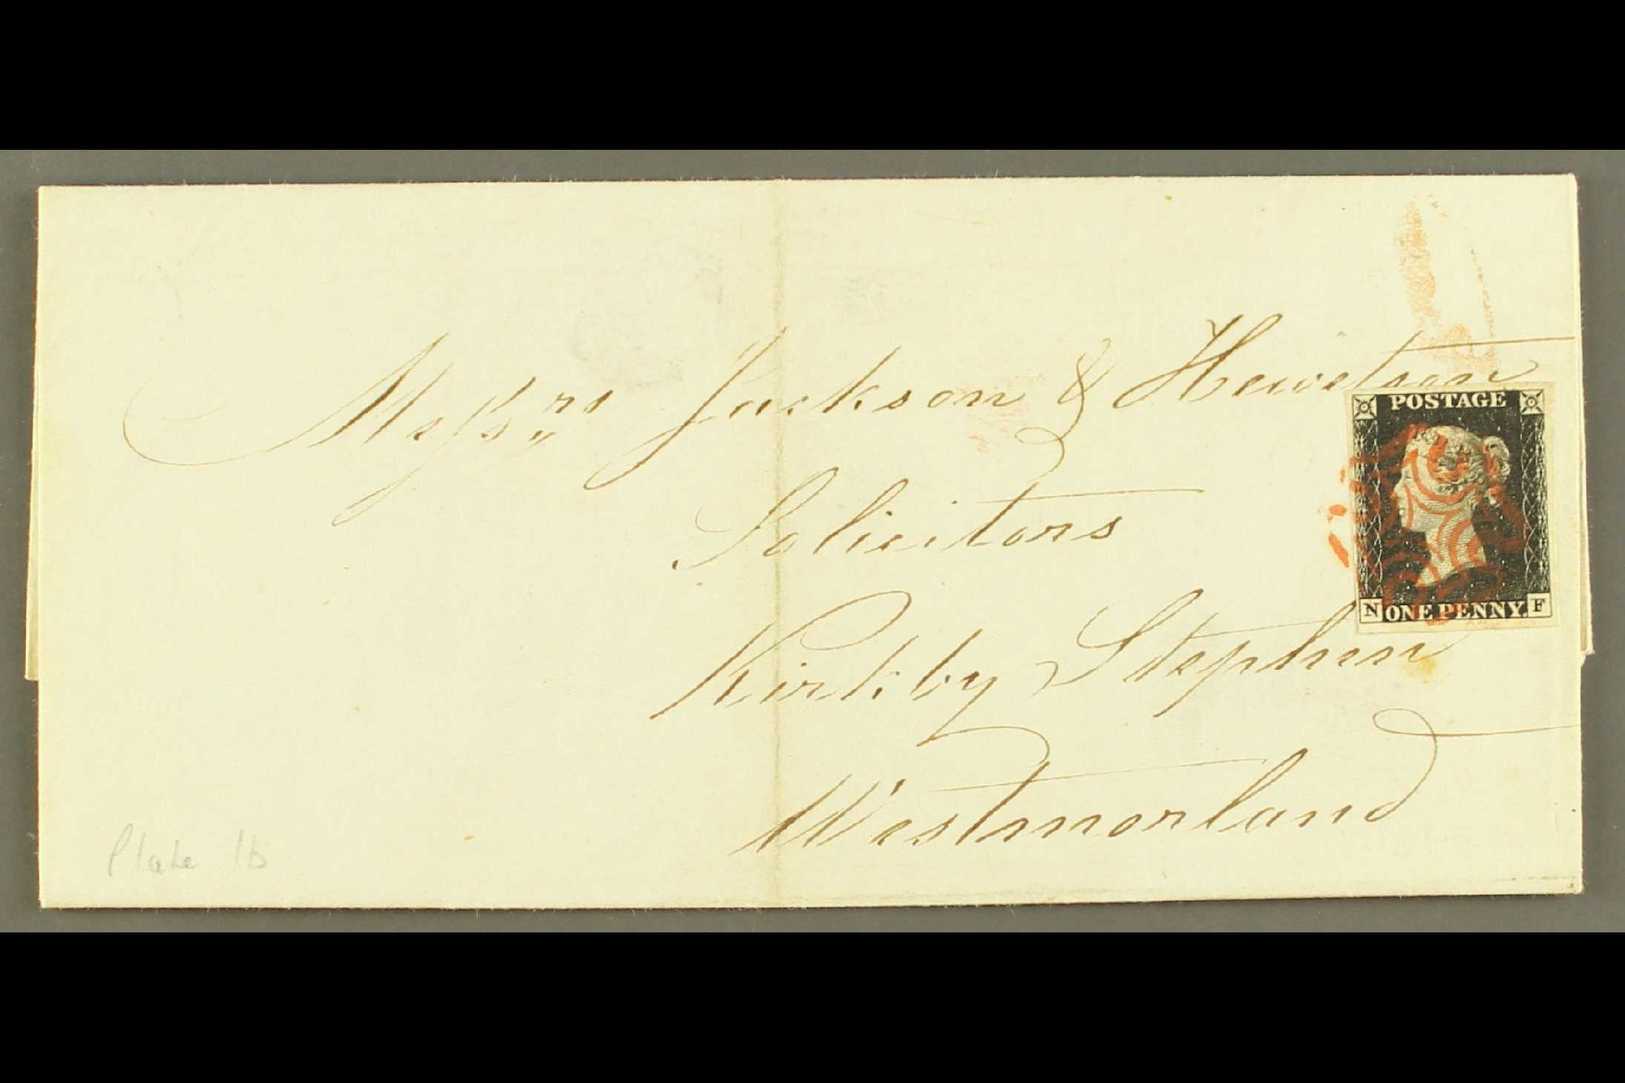 Messrs Jackson & Hewetson
POSTAGE
Solicitors
N ONE PENNY. F
Kirkby Stephen
Westmorland
Plate 1b